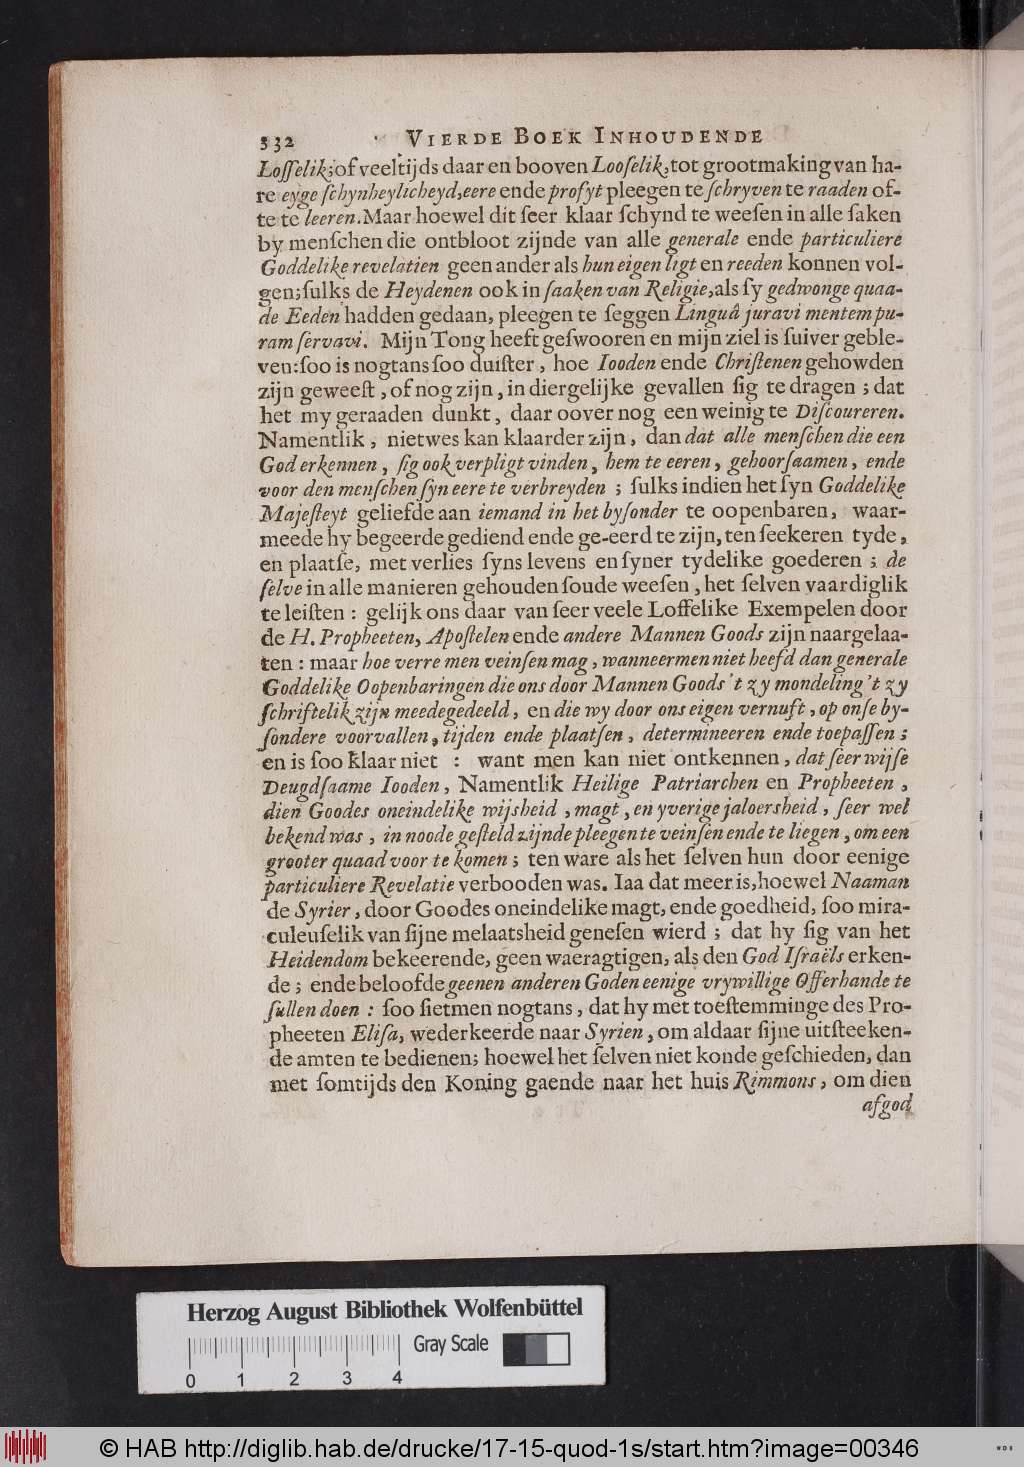 332 VIERDE BOEK INHOUDENDE
Loſſelik; of veeltijds daar en booven Looſelik, tot grootmaking van ha-
re eyge ſchynheylicheyd, eere ende profyt pleegen te ſchryven te raaden of-
te te leeren. Maar hoewel dit ſeer klaar ſchynd te weeſen in alle ſaken
by menſchen die ontbloot zijnde van alle generale ende particuliere
Goddelike revelatien geen ander als hun eigen ligt en reeden konnen vol-
gen; ſulks de Heydenen ook in ſaaken van Religie, als ſy gedwonge quaa-
de Eeden hadden gedaan, pleegen te ſeggen Linguâ juravi mentem pu-
ram ſervavi. Mijn Tong heeft geſwooren en mijn ziel is ſuiver geble-
ven: ſoo is nogtans ſoo duiſter, hoe Iooden ende Chriſtenen gehowden
zijn geweeſt, of nog zijn, in diergelijke gevallen ſig te dragen; dat
het my geraaden dunkt, daar oover nog een weinig te Diſcoureren.
Namentlik, niet wes kan klaarder zijn, dan dat alle menſchen die een
God erkennen, ſig ook verpligt vinden, hem te eeren, gehoorſaamen, ende
voor den menſchen ſyn eere te verbreyden; ſulks indien het ſyn Goddelike
Majeſteyt geliefde aan iemand in het byſonder te oopenbaren, waar-
meede hy begeerde gediend ende ge-eerd te zijn, ten ſeekeren tyde,
en plaatſe, met verlies ſyns levens en ſyner tydelike goederen; de
ſelve in alle manieren gehouden ſoude weeſen, het ſelven vaardiglik
te leiſten: gelijk ons daar van ſeer veele Loffelike Exempelen door
de H. Propheeten, Apoſtelen ende andere Mannen Goods zijn naargelaa-
ten: maar hoe verre men veinſen mag, wanneer men niet heefd dan generale
Goddelike Oopenbaringen die ons door Mannen Goods 't zy mondeling 't zy
ſchriftelik zijn meedegedeeld, en die wy door ons eigen vernuft, op onſe by-
ſondere voorvallen, tijden ende plaatſen, determineeren ende toepaſſen;
en is ſoo klaar niet: want men kan niet ontkennen, dat ſeer wijſe
Deugdſaame Iooden, Namentlik Heilige Patriarchen en Propheeten,
dien Goodes oneindelike wijsheid, magt, en yverige jaloersheid, ſeer wel
bekend was, in noode geſteld zijnde pleegen te veinſen ende te liegen, om een
grooter quaad voor te komen; ten ware als het ſelven hun door eenige
particuliere Revelatie verbooden was. Iaa dat meer is, hoewel Naaman
de Syrier, door Goodes oneindelike magt, ende goedheid, ſoo mira-
culeuſelik van ſijne melaatsheid geneſen wierd; dat hy ſig van het
Heidendom bekeerende, geen waeragtigen, als den God Iſraëls erken-
de; ende beloofde geenen anderen Goden eenige vrywillige Offerhande te
ſullen doen: ſoo ſiet men nogtans, dat hy met toeſtemminge des Pro-
pheeten Eliſa, wederkeerde naar Syrien, om aldaar ſijne uitſteeken-
de amten te bedienen; hoewel het ſelven niet konde geſchieden, dan
met ſomtijds den Koning gaende naar het huis Rimmons, om dien
afgod
Herzog August Bibliothek Wolfenbüttel
Gray Scale
0 1 2 3 4
© HAB http://diglib.hab.de/drucke/17-15-quod-1s/start.htm?image=00346